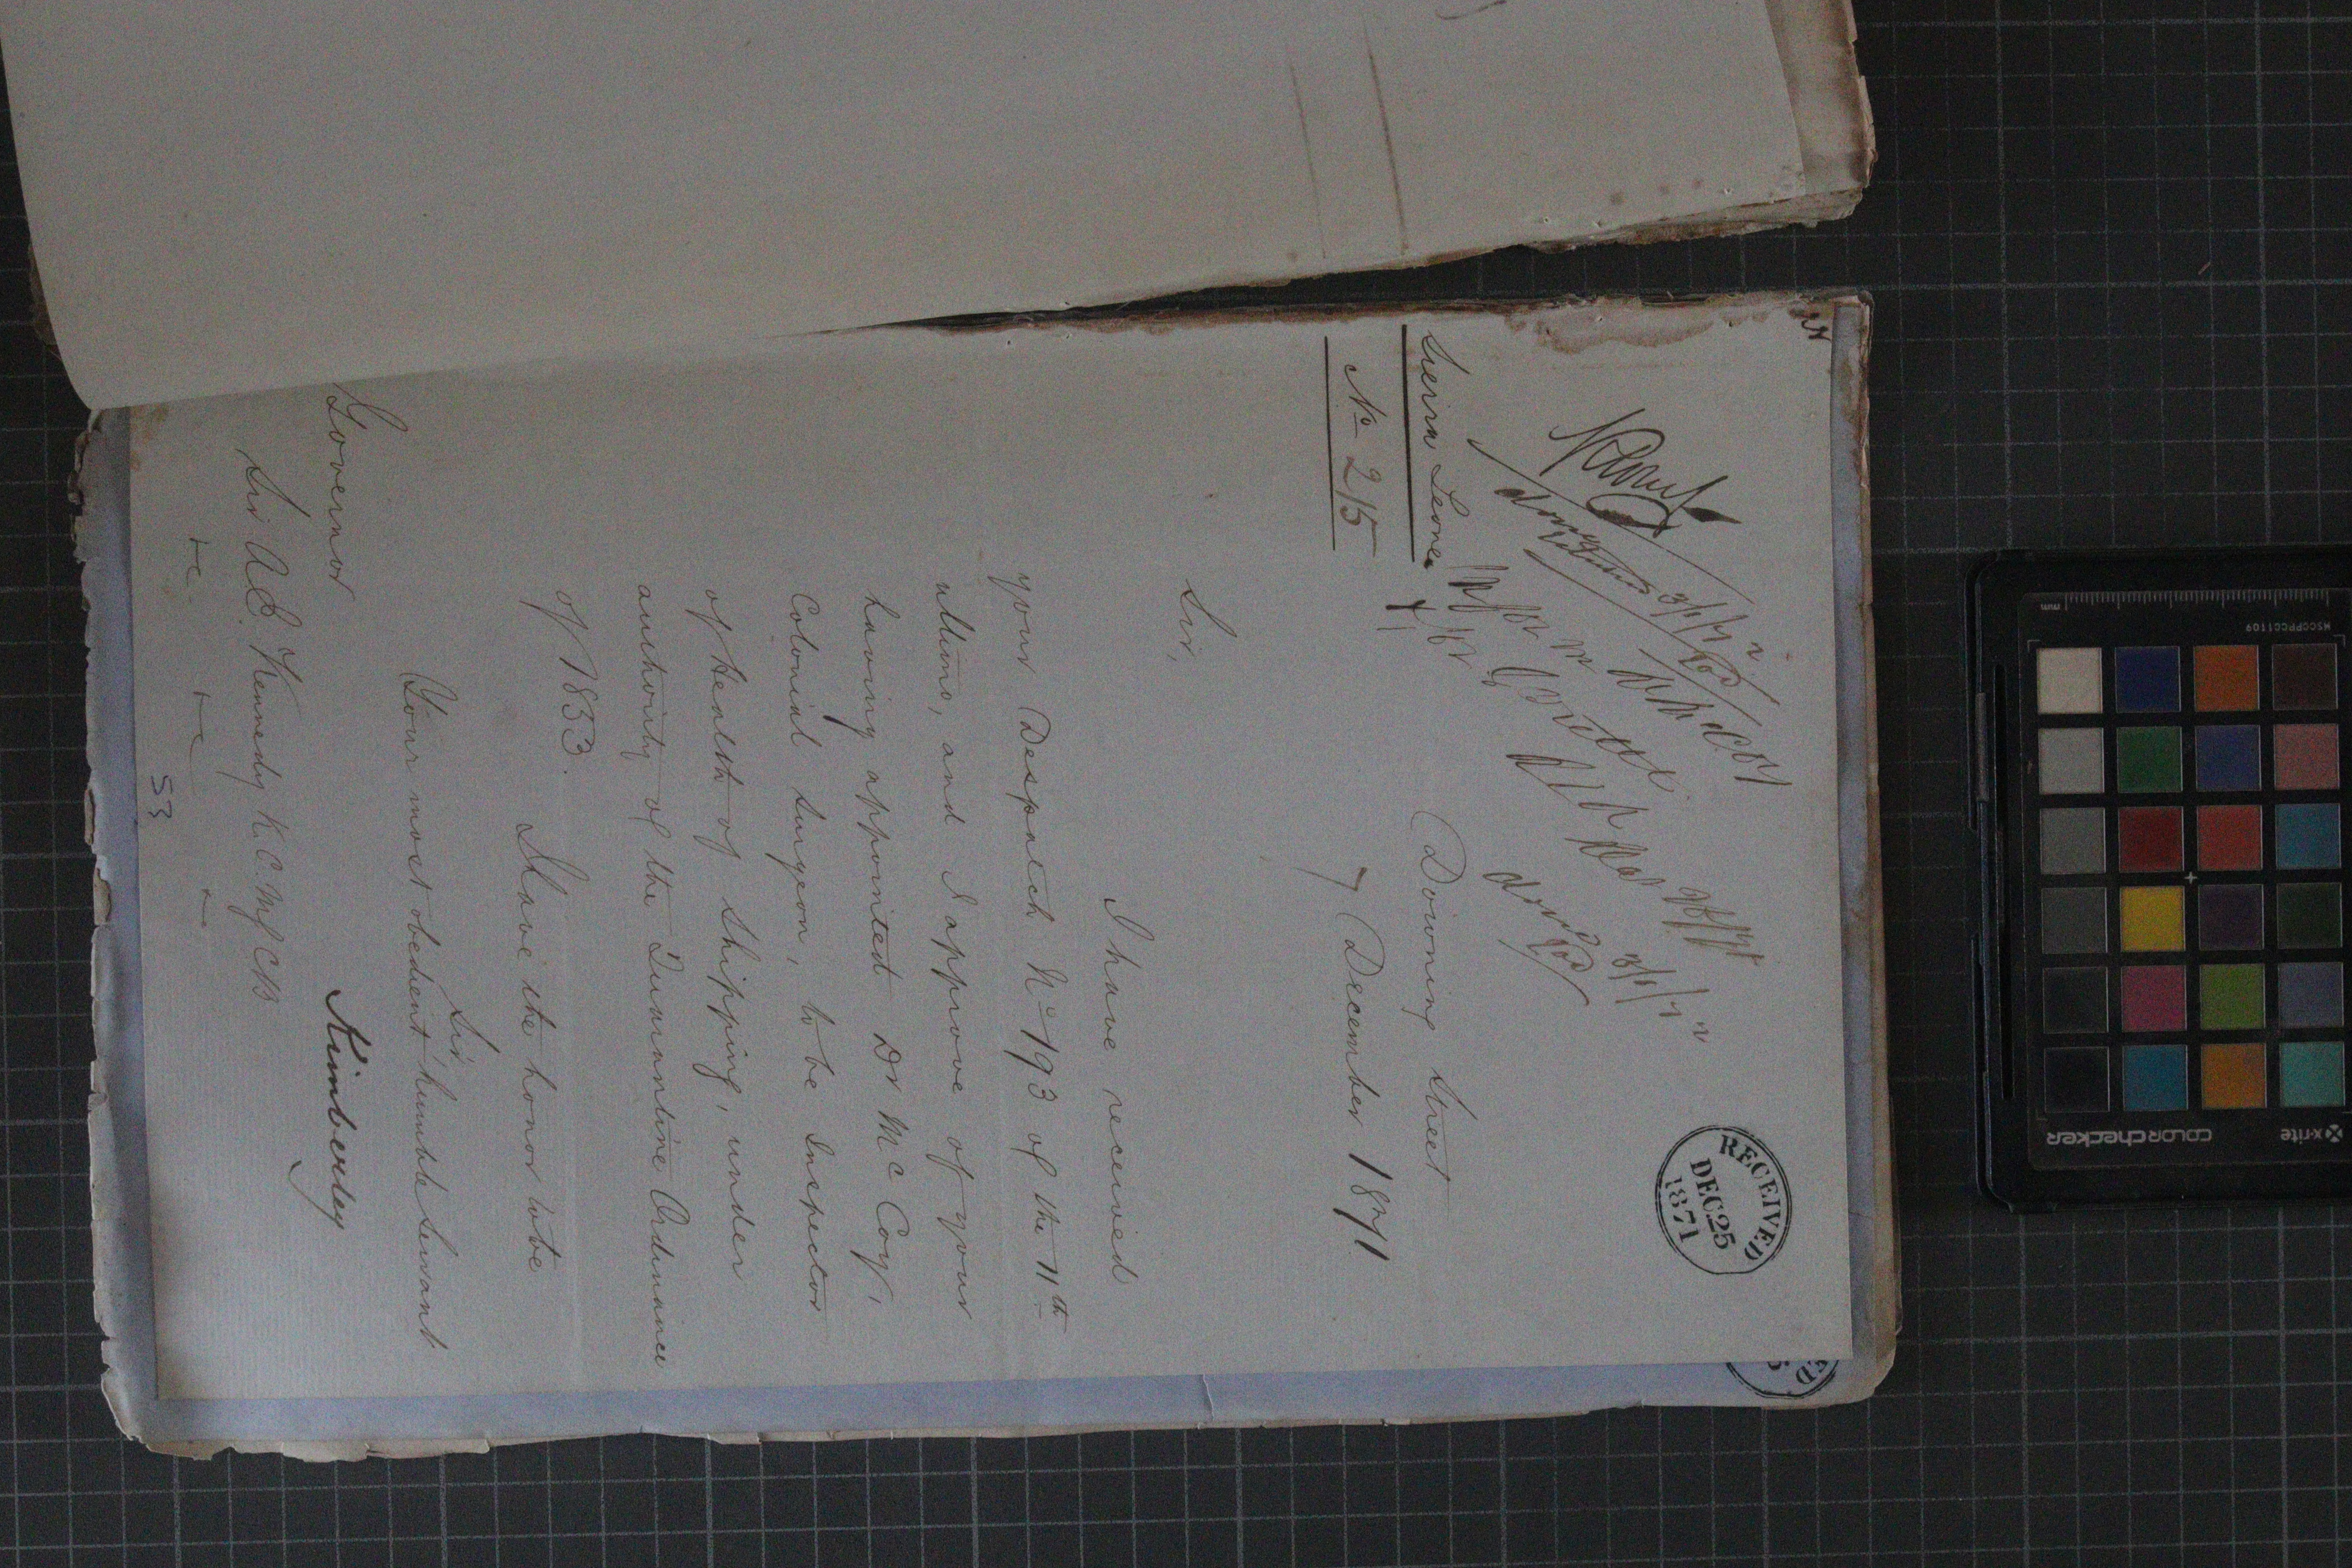 RECEIVED
DEC 25
1871
Sierra Leone
No 215
Downing Street
7 December 1871
Sir,
I have received
your Despatch No 193 of the 11th
ultimo, and I approve of your
having appointed Dr McCoy,
Colonial Surgeon, to be Inspector
of Health of Shipping, under
authority of the Quarantine Ordinance
of 1833.
I have the honor to be
Sir
Your most obedient humble Servant
Kimberley
Governor
Sir A E. Kennedy K.C.M.G. C.B
&c &c &c
53
x-rite
colorchecker
MSCCPPCC1109
mm